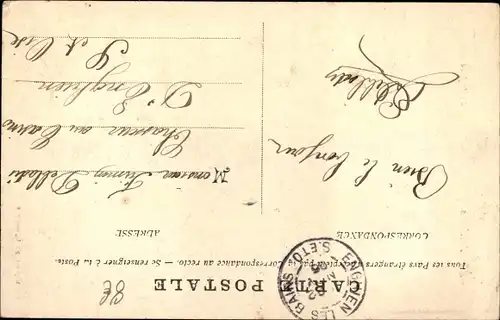 CARTE POSTALE
Tous les Pays étrangers n'acceptent pas la Correspondance au recto. — Se renseigner à la Poste.
CORRESPONDANCE
ADRESSE
ENGHIEN LES BAINS
S.-ET-O.
Bien le bonjour
Monsieur
Chasseur au Casino
D'Enghien
S et Oise